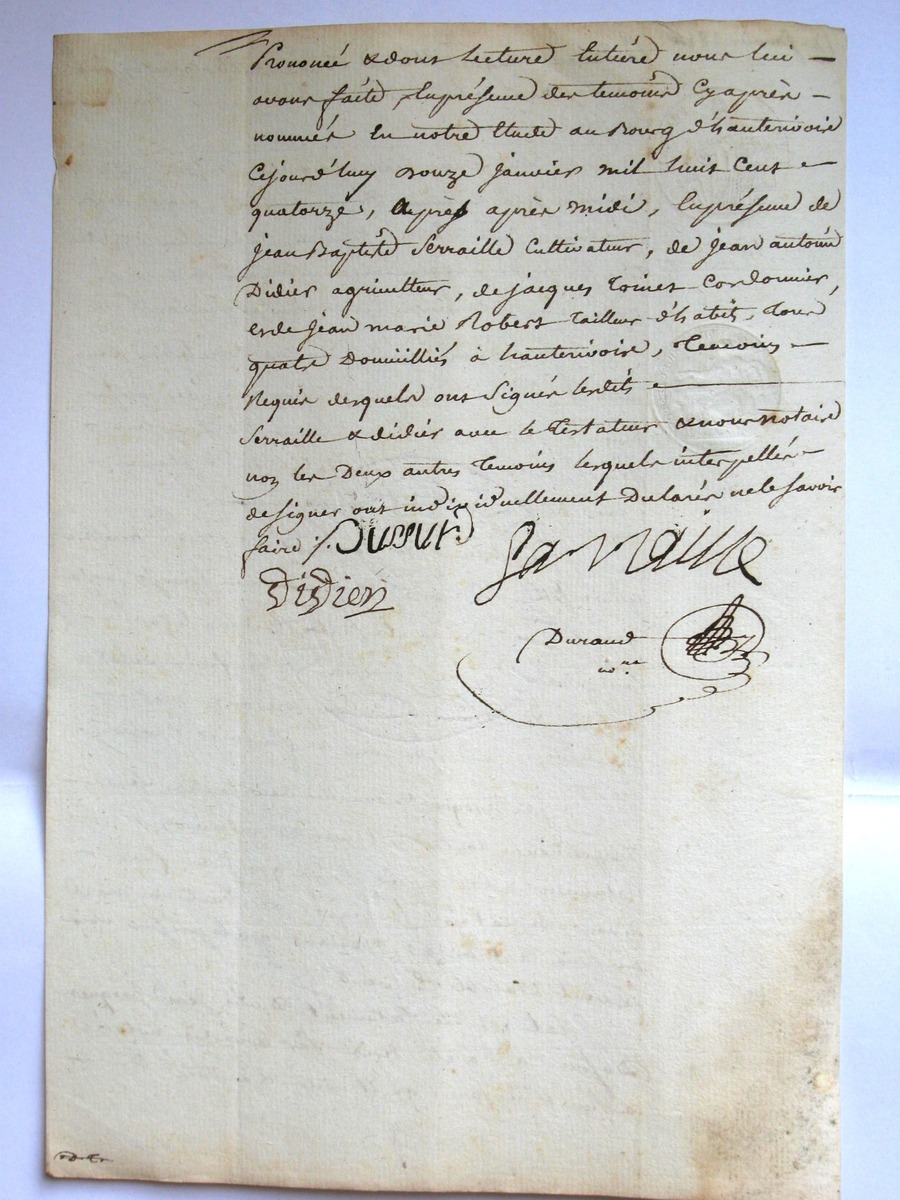 Prononcé & dont Lecture Entiére nous lui —
avons faite, Enprésence des temoins Cyaprès —
nommés En notre Etude au Bourg d'hauterivoire
Cejourd'huy Douze janvier mil huit Cent —
quatorze, après après midi, Enprésence de
jean Baptiste Serraille Cultivateur, de jean antoine
Didier agriculteur, de jacques Coinet Cordonnier,
et de jean marie Robert Tailleur d'habits, Tous
quatre Domiciliés à hauterivoire, Temoins —
Requis desquels ont Signés lesdits —
Serraille & didier avec le Testateur & nous notaire
non les Deux autres Temoins lesquels interpellés —
de signer ont individuellement Declarés ne le savoir
faire /.
Didier
Durand
nore